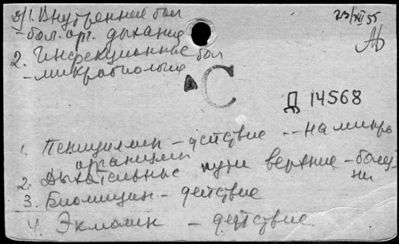 1. Внутренние бол
23/XII 55
- бол. орг. дыхание
2. Инфекционные бол
- микробиология
С
Д 14568
1. Пенициллин - действие -- на микро
организмы
2. Дыхательные пути верхние - болез
ни
3. Биомицин - действие
4. Экмолин - действие